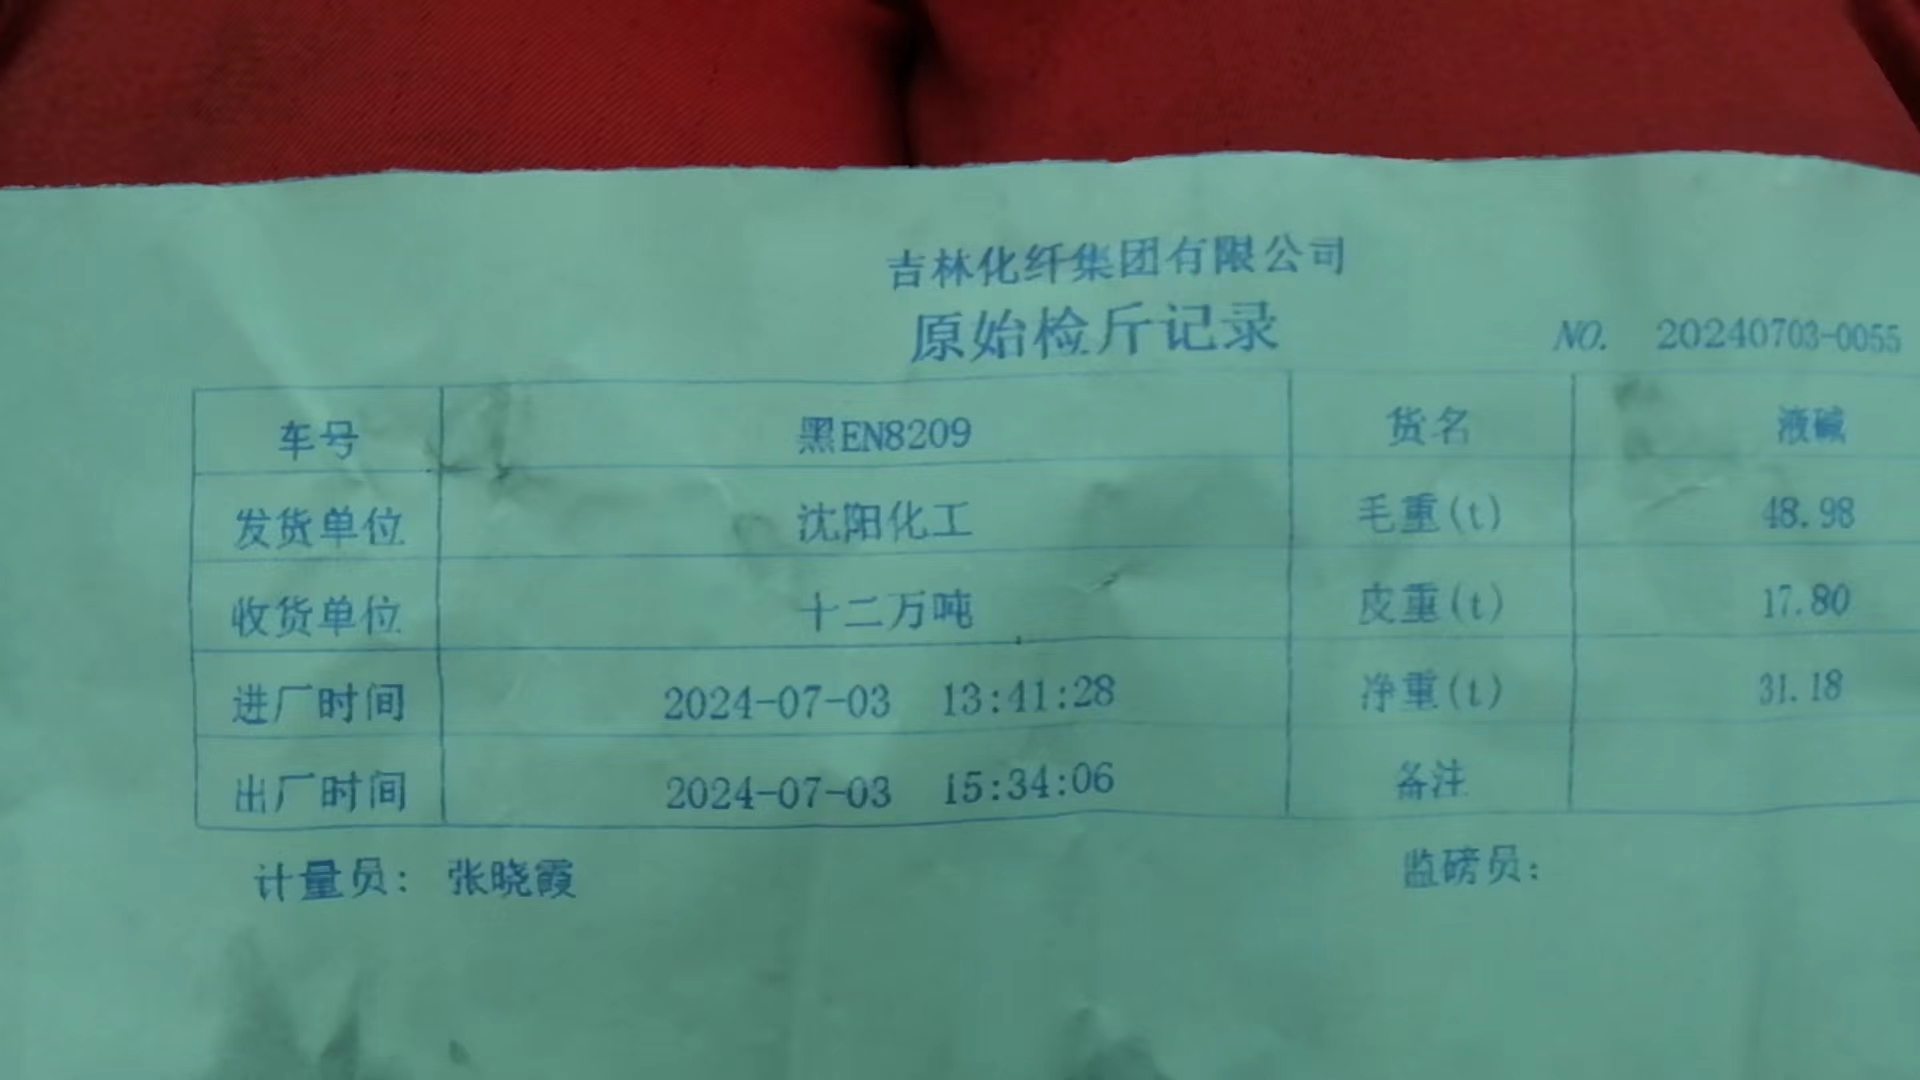 吉林化纤集团有限公司
原始检斤记录
NO. 20240703-0055
车号 黑EN8209 货名 液碱
发货单位 沈阳化工 毛重(t) 48.98
收货单位 十二万吨 皮重(t) 17.80
进厂时间 2024-07-03 13:41:28 净重(t) 31.18
出厂时间 2024-07-03 15:34:06 备注
计量员: 张晓霞 监磅员: